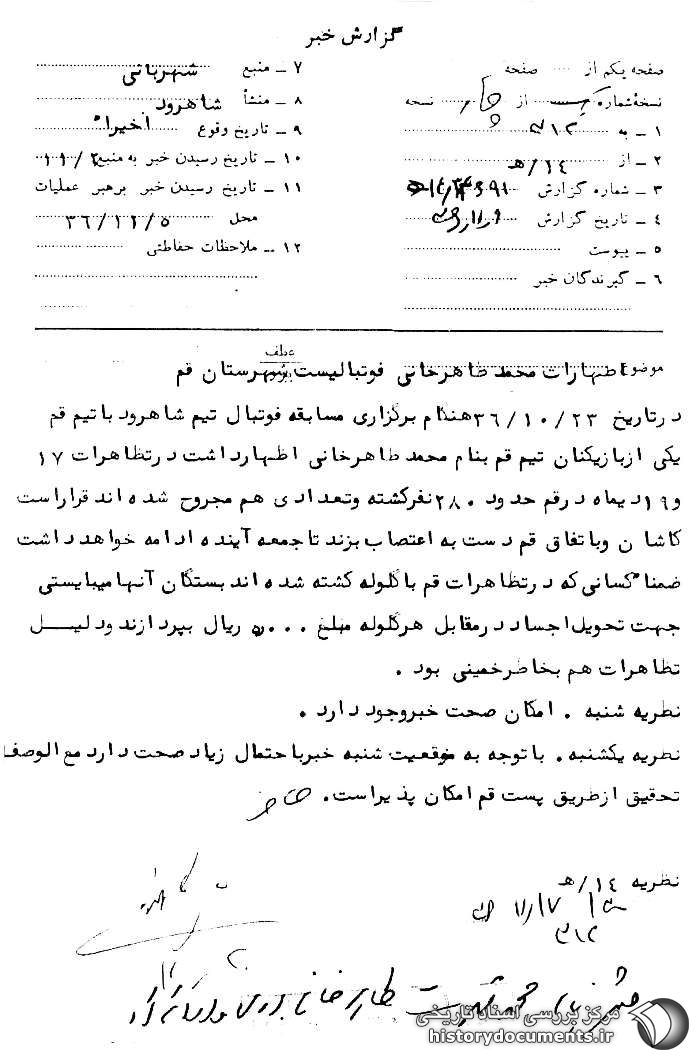 گزارش خبر
صفحه یکم از ..... صفحه
نسخه شماره ..... از ..... نسخه
۱ ـ به ۳۱۲
۲ ـ از ۱۴/هـ
۳ ـ شماره گزارش
۴ ـ تاریخ گزارش
۵ ـ پیوست
۶ ـ گیرندگان خبر
۷ ـ منبع شهربانی
۸ ـ منشأ شاهرود
۹ ـ تاریخ وقوع اخیرا"
۱۰ ـ تاریخ رسیدن خبر به منبع
۱۱ ـ تاریخ رسیدن خبر برهبر عملیات
محل ۳۶/۱۱/۵
۱۲ ـ ملاحظات حفاظتی
موضوع اظهارات محمد طاهرخانی فوتبالیست شهرستان قم
عطف
درتاریخ ۳۶/۱۰/۲۳ هنگام برگزاری مسابقه فوتبال تیم شاهرود باتیم قم
یکی ازبازیکنان تیم قم بنام محمد طاهرخانی اظهارداشت درتظاهرات ۱۷
و۱۹دیماه درقم حدود ۲۸۰نفرکشته وتعدادی هم مجروح شده اند قراراست
کاشان وباتفاق قم دست به اعتصاب بزند تاجمعه آینده ادامه خواهد داشت
ضمنا" کسانی که درتظاهرات قم باگلوله کشته شده اند بستگان آنها میبایستی
جهت تحویل اجساد درمقابل هرگلوله مبلغ ۵۰۰۰ ریال بپردازند ودلیل
تظاهرات هم بخاطرخمینی بود .
نظریه شنبه . امکان صحت خبروجود دارد .
نظریه یکشنبه . باتوجه به موقعیت شنبه خبرباحتمال زیاد صحت دارد مع الوصف
تحقیق ازطریق پست قم امکان پذیراست .
نظریه ۱۴/هـ
۳۱۲
مرکز بررسی اسناد تاریخی
historydocuments.ir